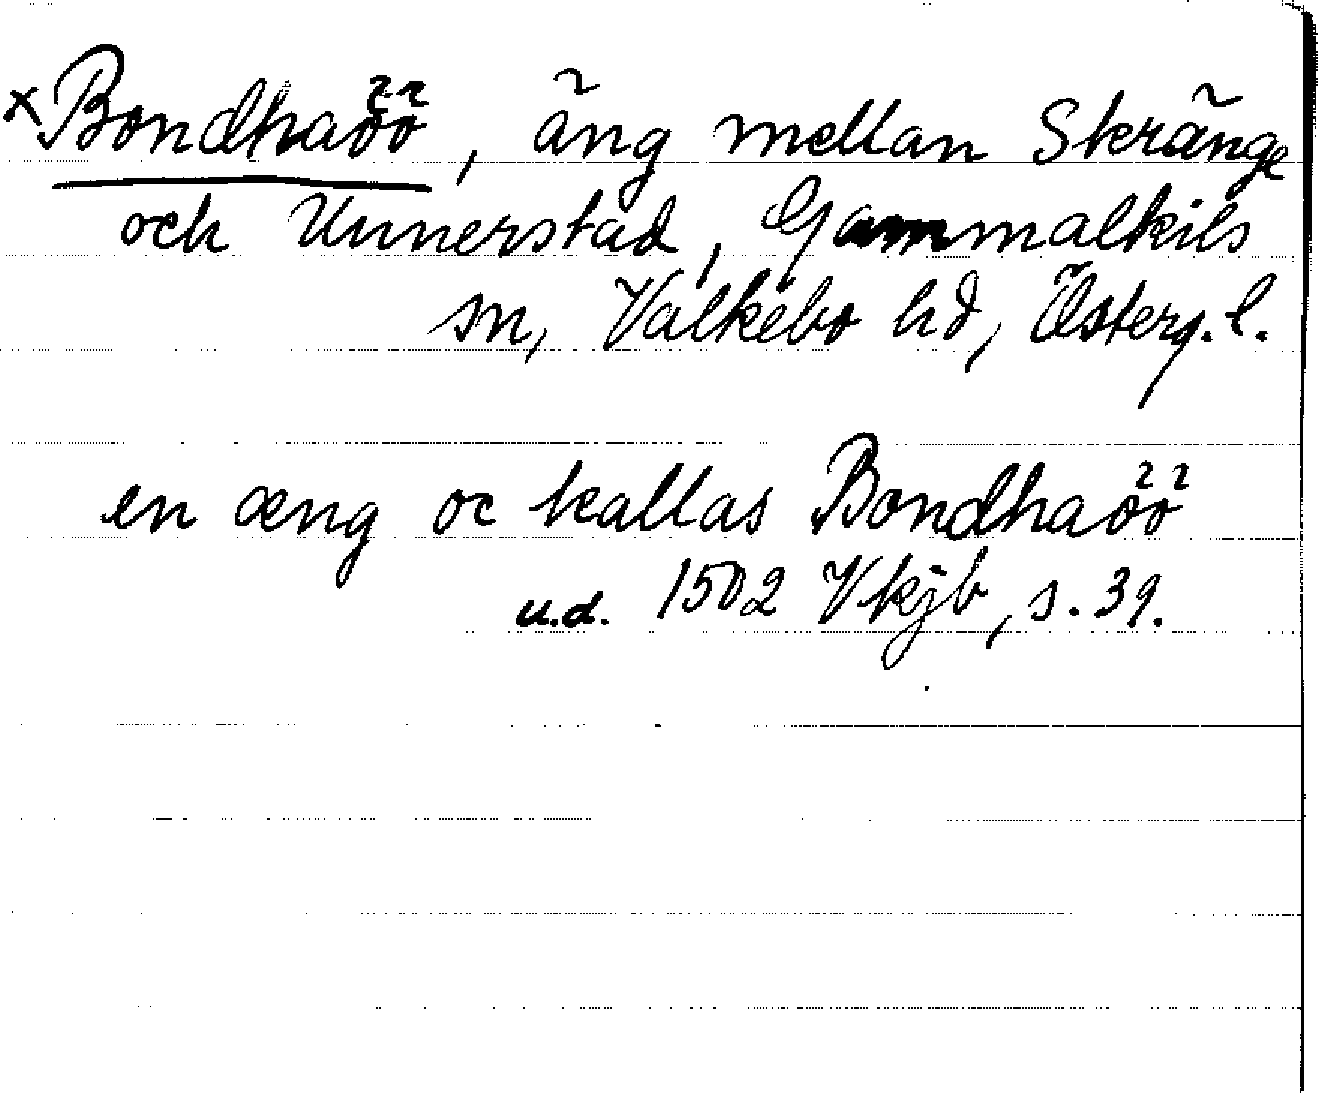 x Bondhaöö, äng mellan Skränge
och Unnerstad, Gammalkils
sn, Valkebo hd, Österg. l.
en æng oc kallas Bondhaöö
u.d. 1502 Vkjb, s. 39.